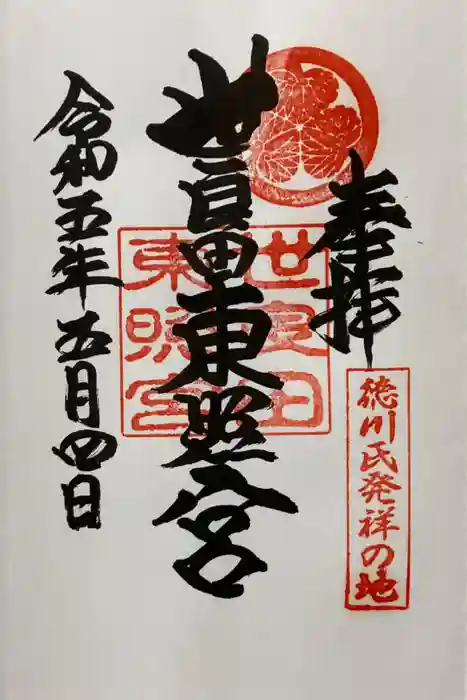 奉拝
徳川氏発祥の地
世良田東照宮
世良田
東照宮
令和五年五月四日